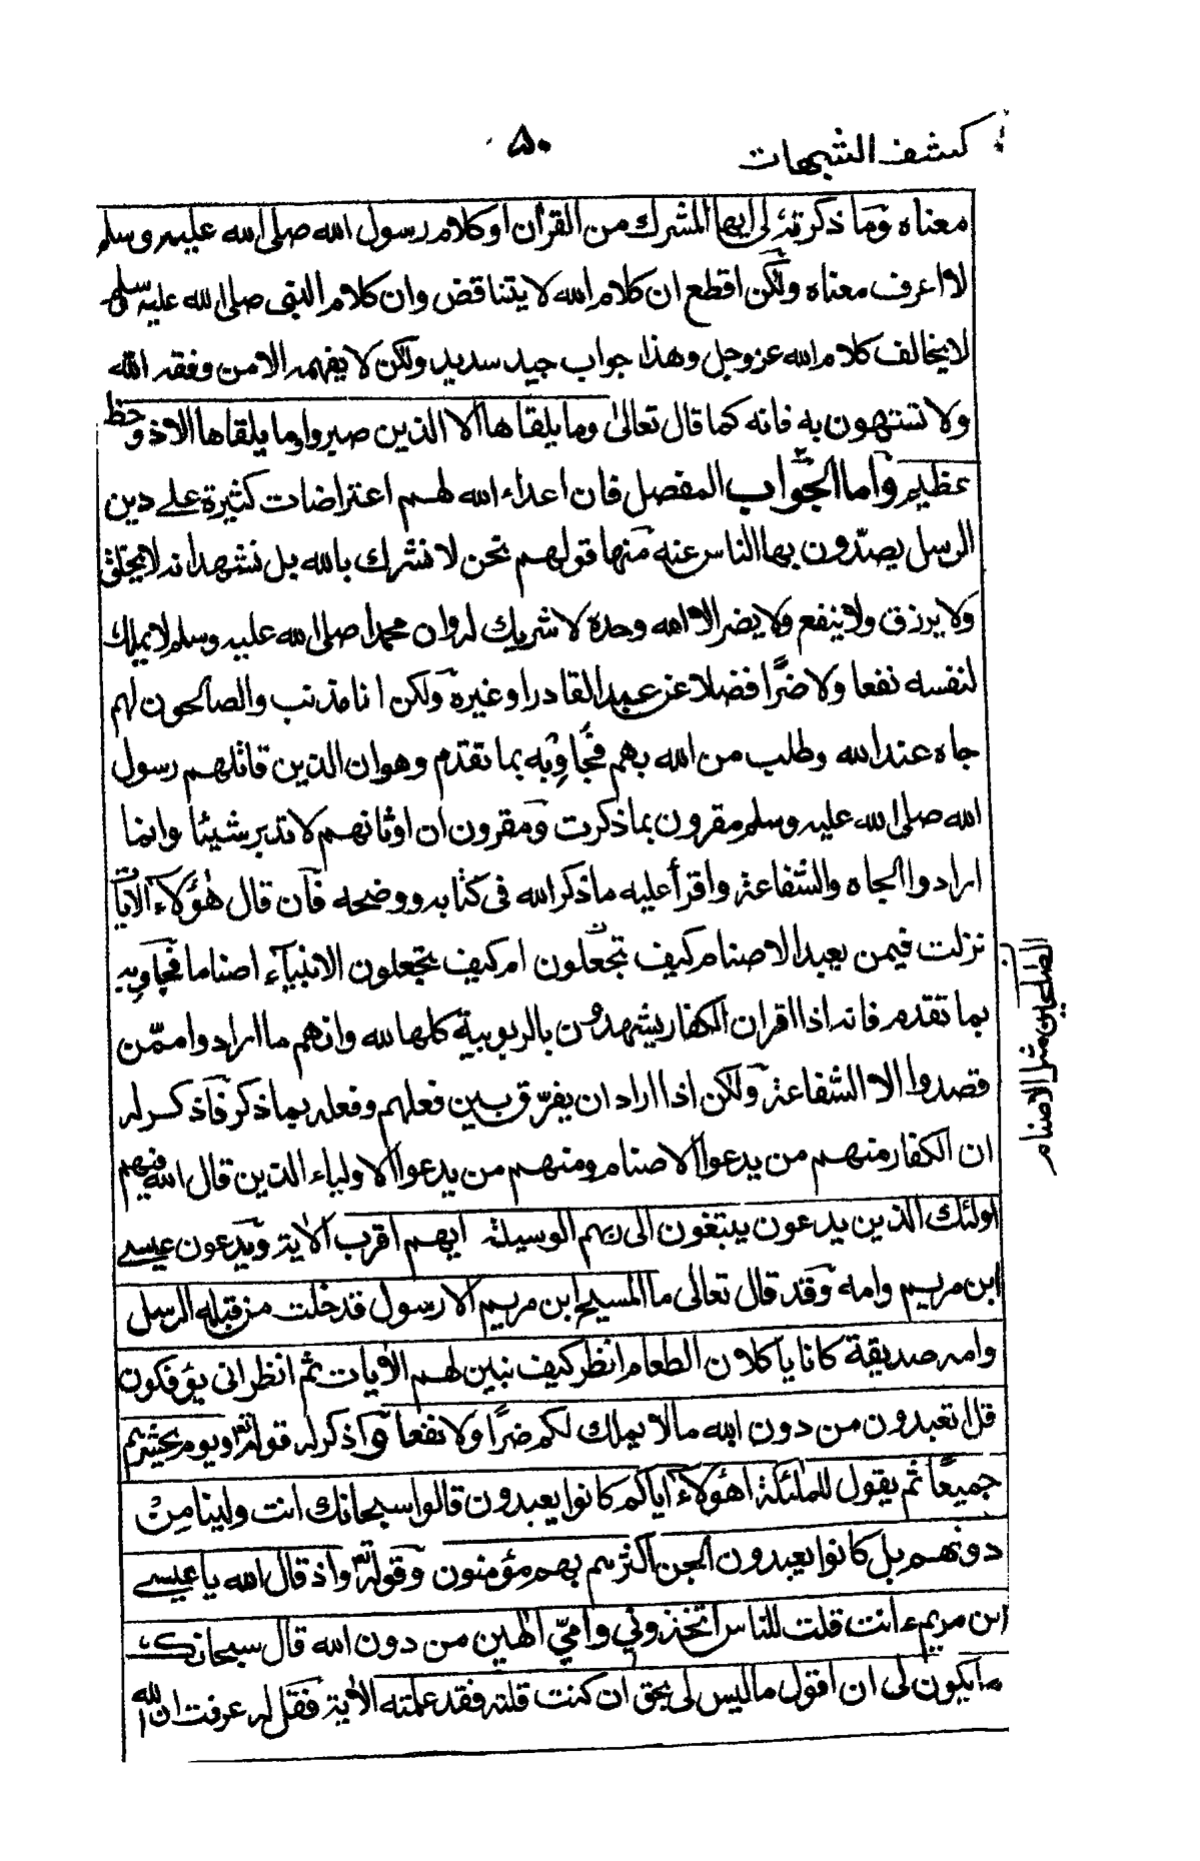 كشف الشبهات
۵۰
معناه وما ذكرته لى ايها المشرك من القرأن او كلام رسول الله صلى الله عليه وسلم
لا اعرف معناه ولكن اقطع ان كلام الله لا يتناقض وان كلام النبى صلى الله عليه وسلم
لا يخالف كلام الله عزوجل وهذا جواب جيد سديد ولكن لا يفهمه الا من وفقه الله
ولا تستهون به فانه كما قال تعالى وما يلقاها الا الذين صبروا وما يلقاها الا ذو حظ
عظيم وأما الجواب المفصل فان اعداء الله لهم اعتراضات كثيرة على دين
الرسل يصدّون بها الناس عنه منها قولهم نحن لا نشرك بالله بل نشهد انه لا يخلق
ولا يرزق ولا ينفع ولا يضر الا الله وحده لا شريك له وان محمدا صلى الله عليه وسلم لا يملك
لنفسه نفعا ولا ضرًّا فضلا عن عبد القادر او غيره ولكن انا مذنب والصالحون لهم
جاه عند الله وطلب من الله بهم فجاوِبْه بما تقدم وهو ان الذين قاتلهم رسول
الله صلى الله عليه وسلم مقرون بما ذكرت ومقرون ان اوثانهم لا تدبر شيئا وانما
ارادوا الجاه والشفاعة واقرأ عليه ما ذكر الله فى كتابه ووضحه فأن قال هؤلاء الايات
نزلت فيمن يعبد الاصنام كيف تجعلون الصالحين مثل الاصنام ام كيف تجعلون الانبيآء اصناما فجاوبه
بما تقدم فانه اذا اقر ان الكفار يشهدون بالربوبية كلها لله وانهم ما ارادوا ممّن
قصدوا الا الشفاعة ولكن اذا اراد ان يفرّق بين فعلهم وفعله بما ذكر فأذكر له
ان الكفار منهم من يدعوا الاصنام ومنهم من يدعوا الاولياء الذين قال الله فيهم
اولئك الذين يدعون يبتغون الى ربهم الوسيلة ايهم اقرب الاية ويدعون عيسے
ابن مريم وامه وقد قال تعالى ما المسيح ابن مريم الا رسول قد خلت من قبله الرسل
وامه صديقة كانا يأكلان الطعام انظر كيف نبين لهم الأيات ثم انظر انى يؤفكون
قل اتعبدون من دون الله مالا يملك لكم ضرًا ولا نفعا واذكر له قوله تع ويوم يحشرهم
جميعًا ثم يقول للملئكة اهؤلاء اياكم كانوا يعبدون قالوا سبحانك انت ولينا مِنْ
دونهم بل كانوا يعبدون الجن اكثرهم بهم مؤمنون وقوله تع واذ قال الله يا عيسے
ابن مريم ءانت قلت للناس اتخذوني وامّي الهين من دون الله قال سبحانك
ما يكون لى ان اقول ما ليس لى بحق ان كنت قلته فقد علمته الأية فقل له عرفت ان الله